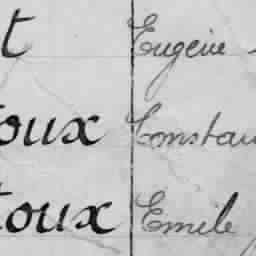 t Eugène
oux Constan
toux Emile